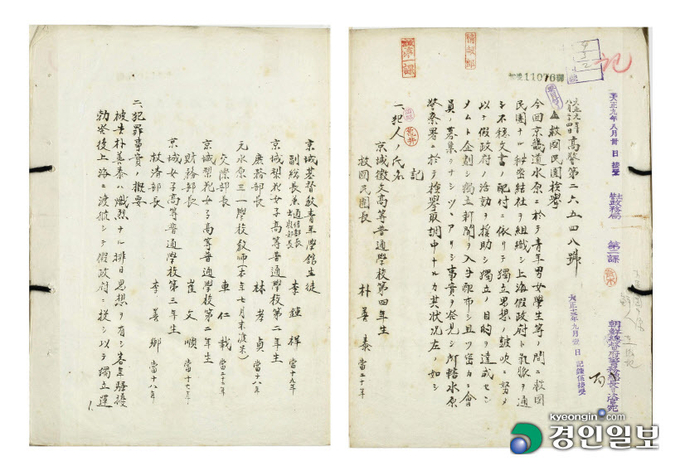 11076
高警第二六五四八號
救國民團檢擧
今回京畿道水原ニ於テ青年男女學生等ノ間ニ救國
民團ナル秘密結社ヲ組織シ上海假政府ト氣脈ヲ通
シ不穩文書ノ配付ニ依リ獨立思想ノ鼓吹ニ努メ
以テ假政府ノ活動ヲ援助シ獨立ノ目的ヲ達成セシ
メムト企劃シ獨立新聞ヲ入手頒布シ且ツ密カニ會
員ノ募集ヲナシツヽアリシ事實ヲ發見シ所轄水原
警察署ニ於テ檢擧取調中ナルカ其狀況左ノ如シ
記
一、犯人ノ氏名
京城徽文高等普通學校第四年生
救國民團長 朴善泰 當二十年
京城基督敎靑年學館生徒
副總長 李鍾祥 當十九年
京城梨花女子高等普通學校第二年生
庶務部長 林孝貞 當十八年
元水原三一學校敎師
交際部長 車仁載
京城梨花女子高等普通學校第二年生
財務部長 崔文順 當十七年
京城女子高等普通學校第三年生
救濟部長 李善卿 當十八年
二、犯罪事實ノ概要
被告朴善泰ハ熾烈ナル排日思想ヲ有シ客年騷擾
勃發後上海ニ渡航シテ假政府ニ投シ以テ獨立運
kyeongin.com
경인일보